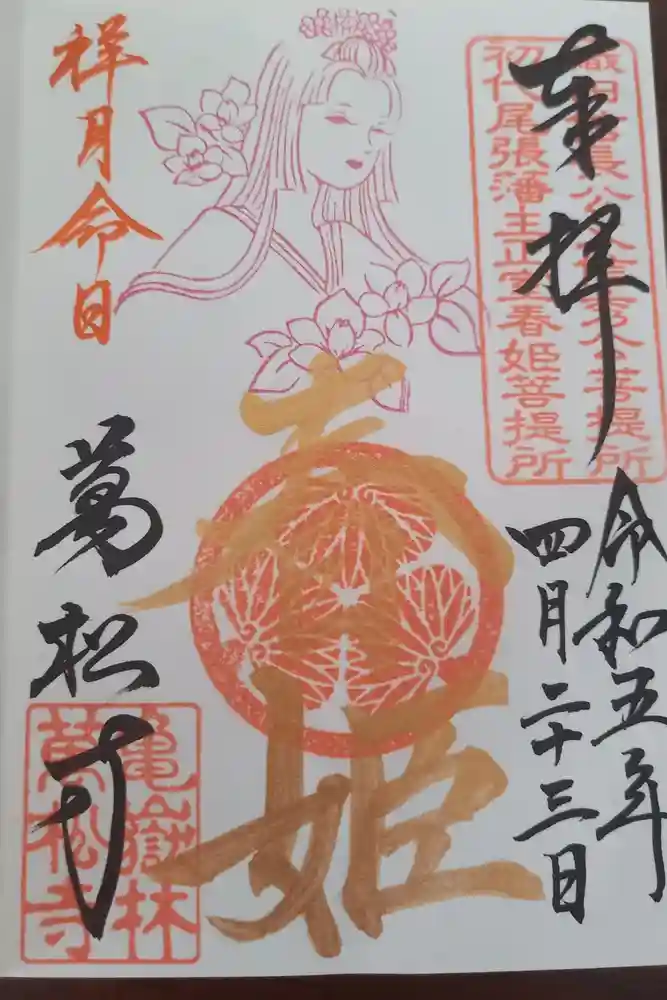 奉拝
令和五年
四月二十三日
初代尾張藩主正室春姫菩提所
春姫
祥月命日
萬松寺
亀嶽林
萬松寺